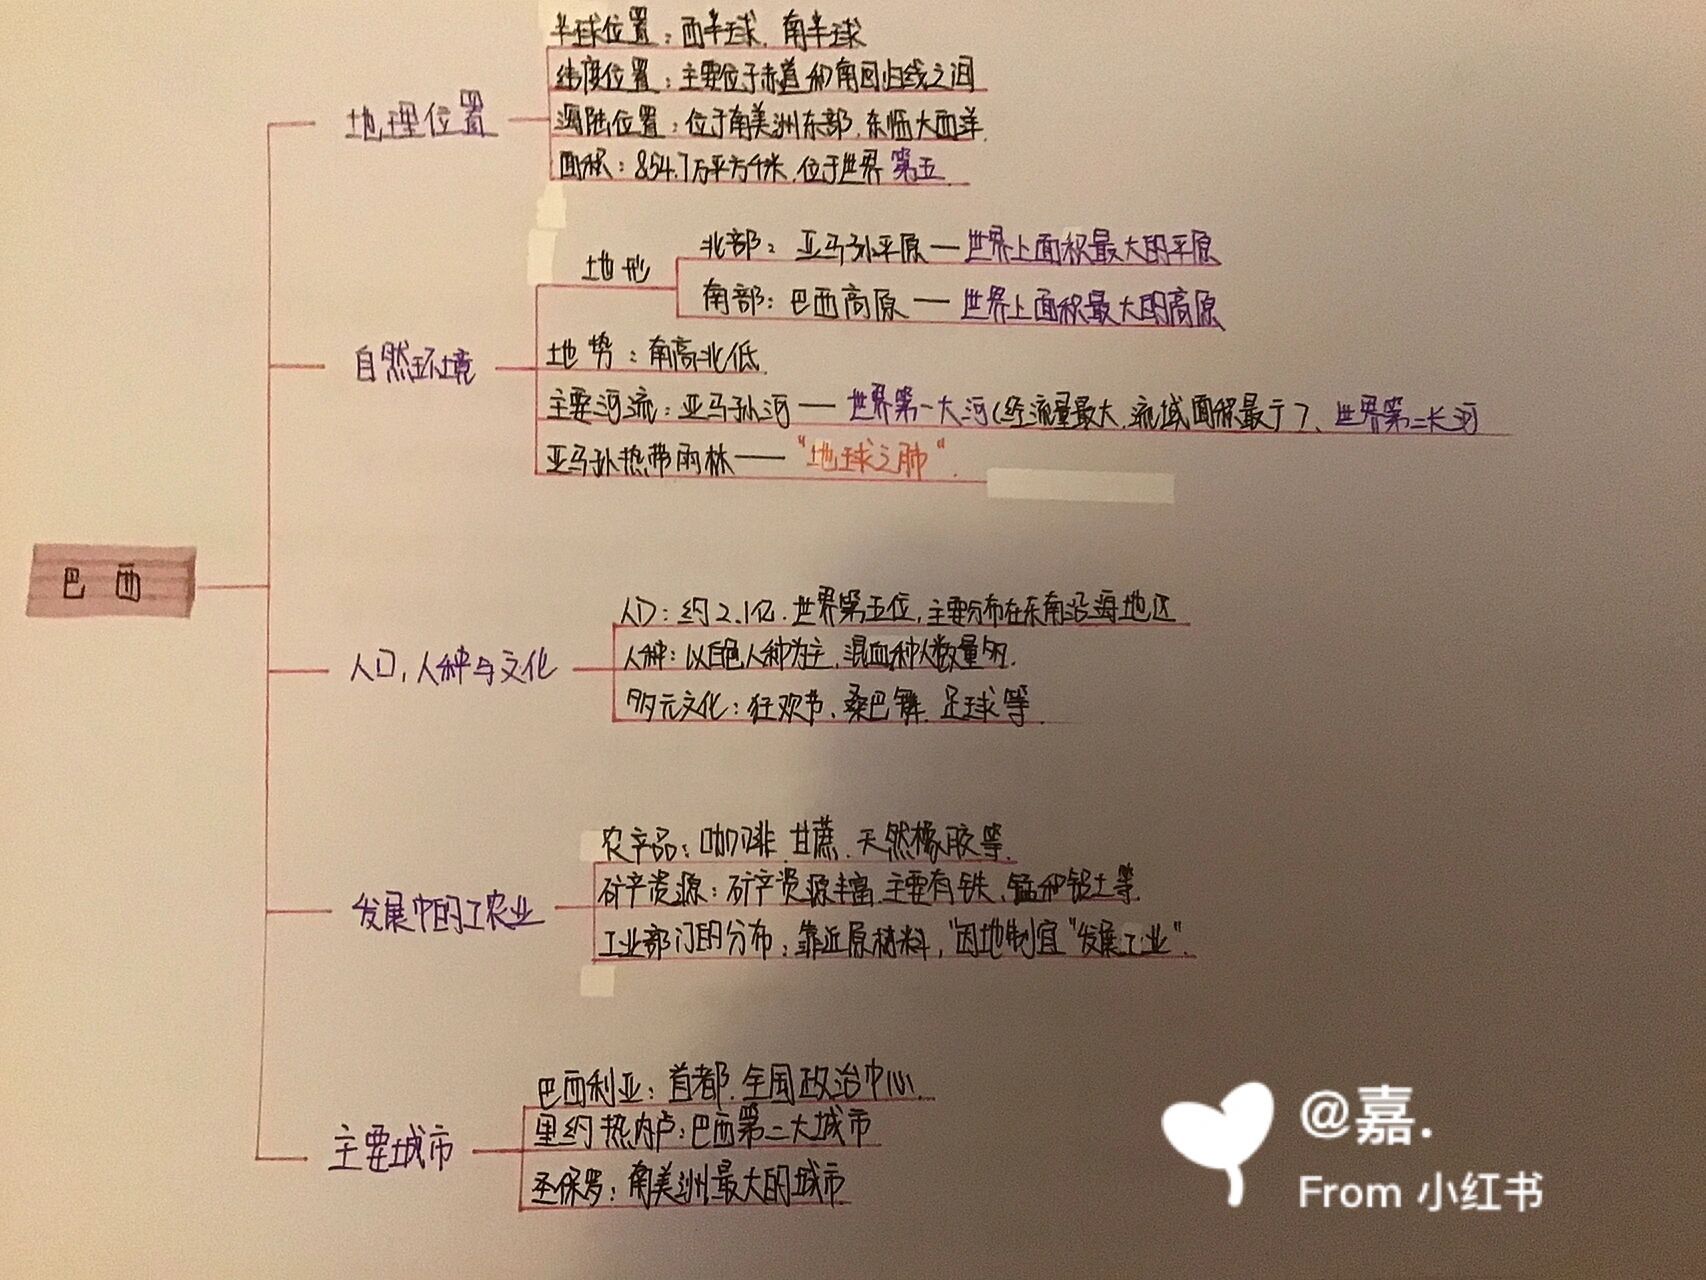 半球位置：西半球、南半球
纬度位置：主要位于赤道和南回归线之间
地理位置
海陆位置：位于南美洲东部，东临大西洋.
面积：854.7万平方千米，位于世界第五
北部：亚马孙平原—世界上面积最大的平原
地形
南部：巴西高原—世界上面积最大的高原
地势：南高北低
自然环境
主要河流：亚马孙河—世界第一大河(径流量最大，流域面积最广)、世界第二长河
亚马孙热带雨林——"地球之肺".
巴西
人口：约2.1亿.世界第五位，主要分布在东南沿海地区
人口，人种与文化
人种：以白色人种为主，混血种人数量多.
多元文化：狂欢节、桑巴舞、足球等.
农产品：咖啡、甘蔗、天然橡胶等.
矿产资源：矿产资源丰富，主要有铁、锰和铝土等
发展中的工农业
工业部门的分布：靠近原材料，"因地制宜"发展工业".
巴西利亚：首都、全国政治中心.
里约热内卢：巴西第二大城市
主要城市
圣保罗：南美洲最大的城市
@嘉.
From 小红书